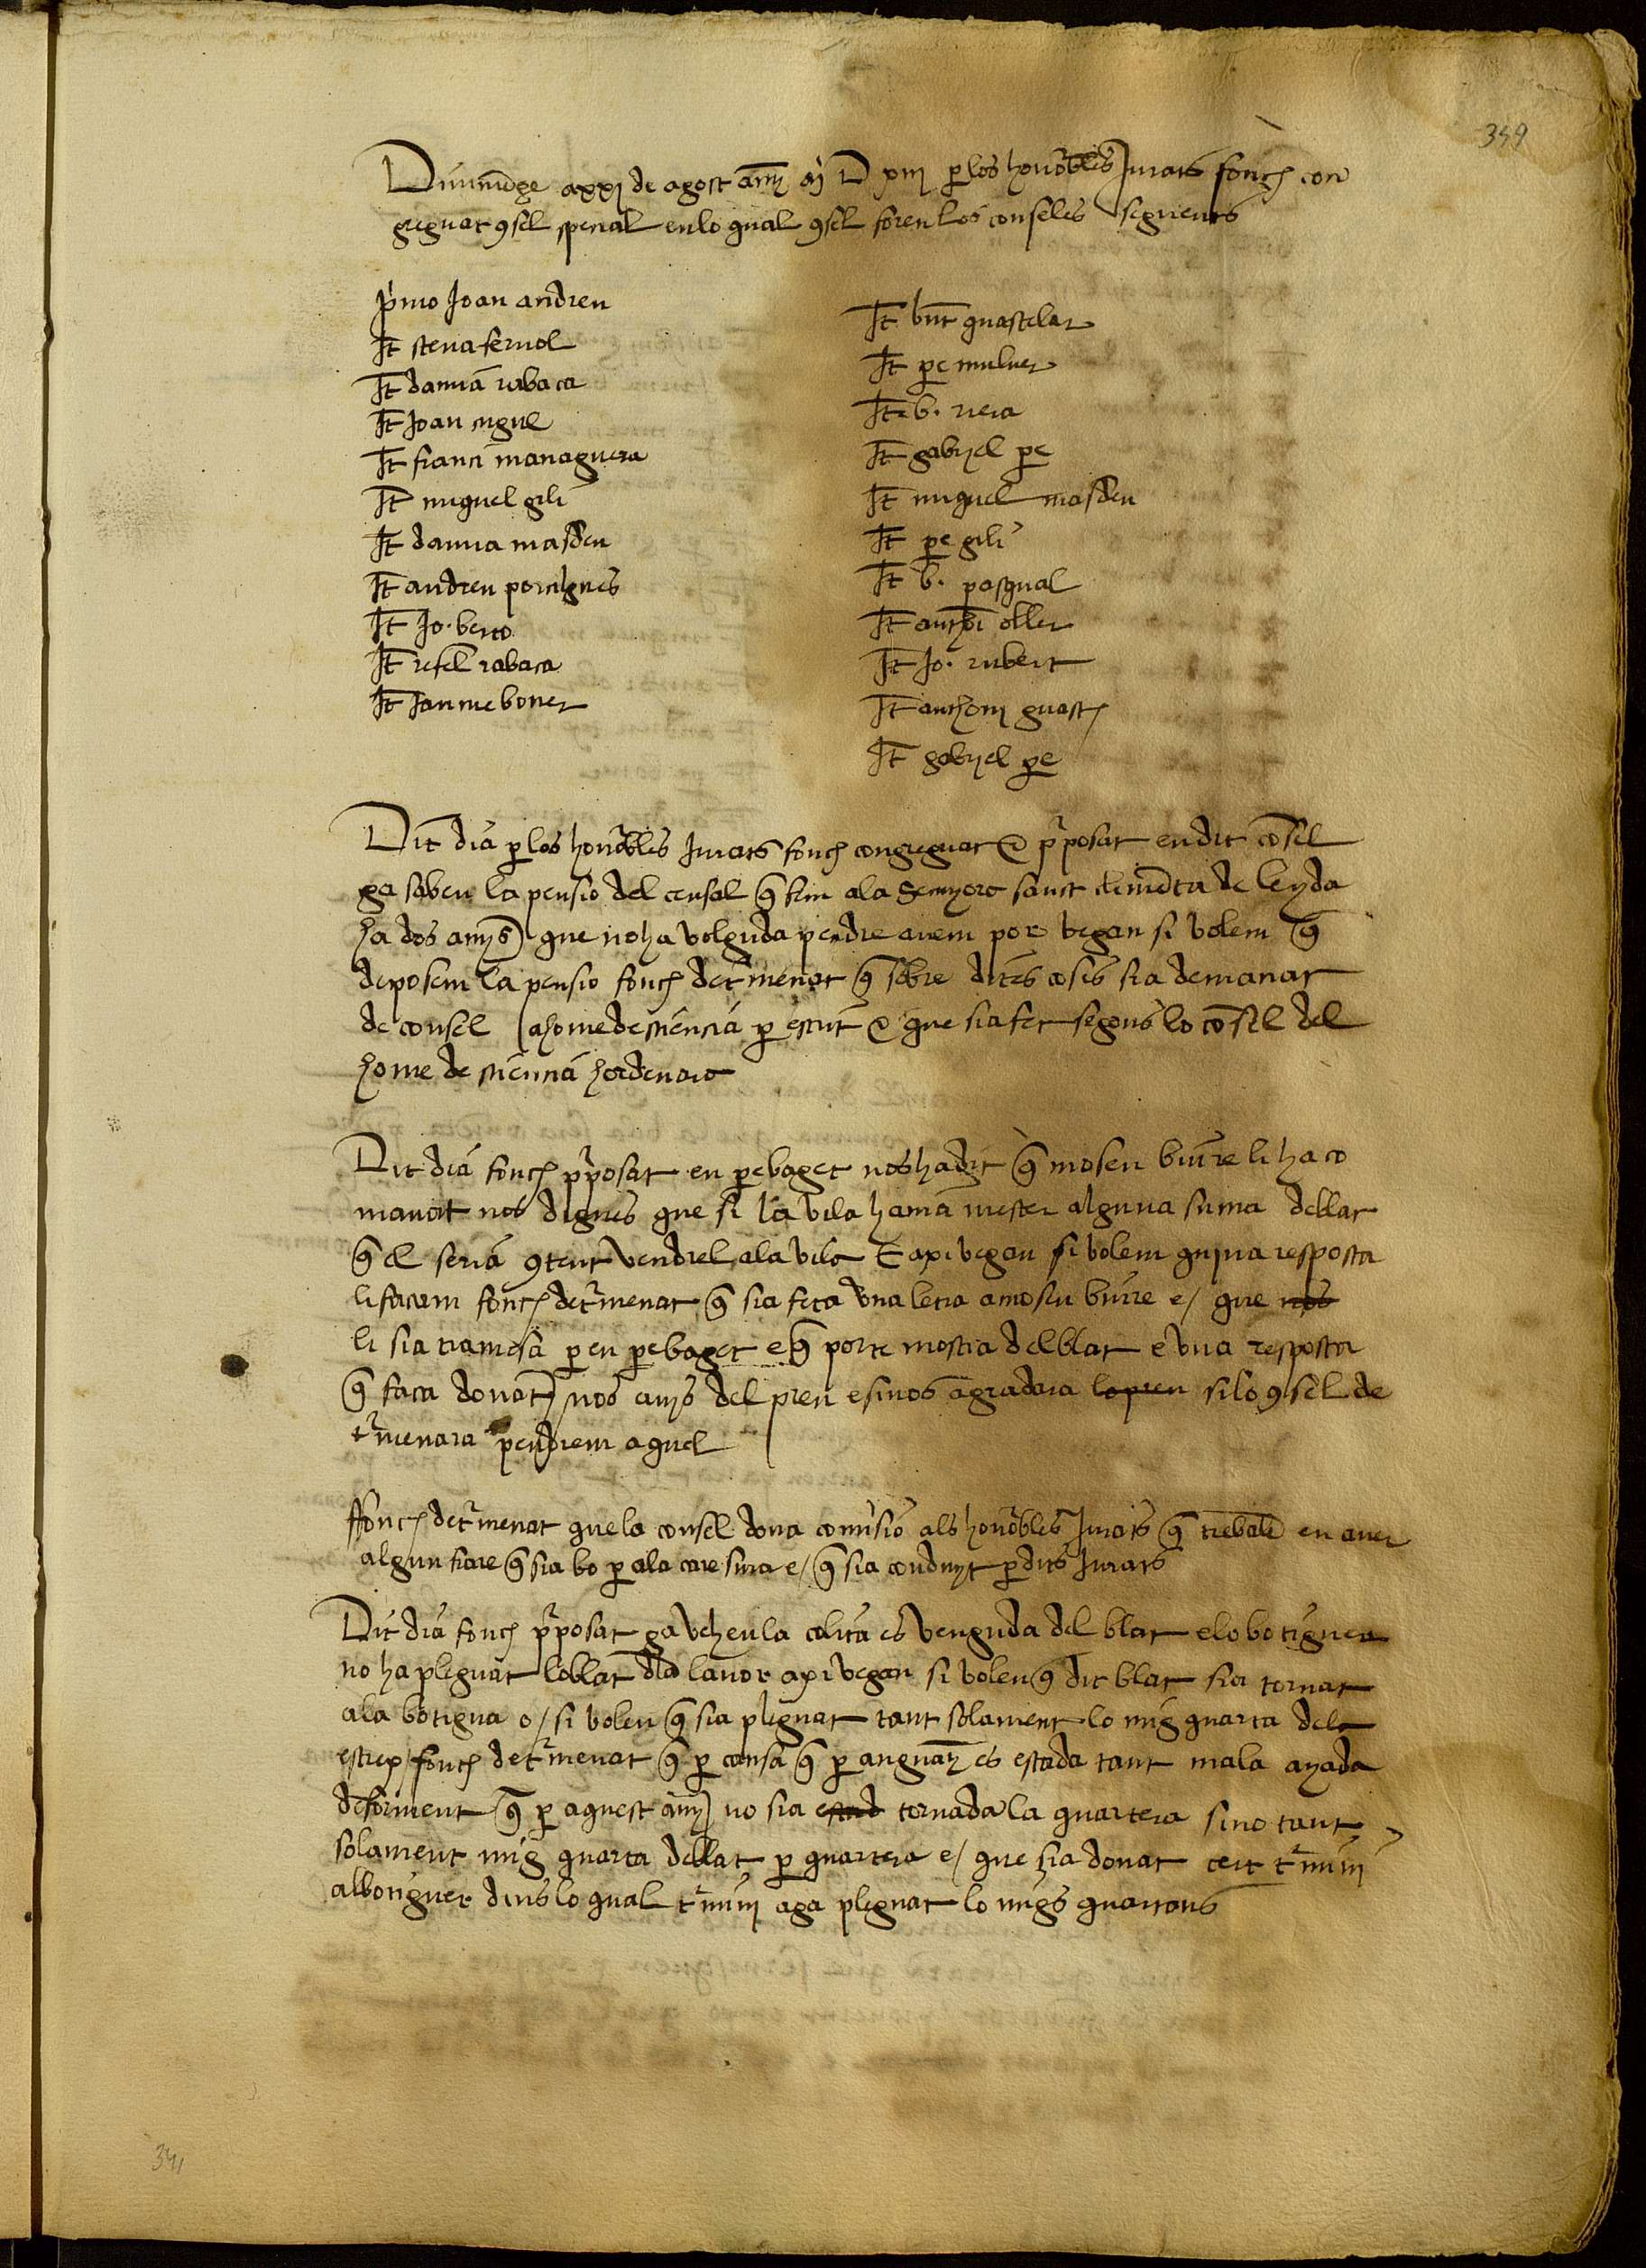 349
Diumege a xxj de agost any M D xiij per los honorables Jurats fonch con
greguat consel special en lo qual consel foren los conseles seguents
primo Joan andreu
It steva ferrol
It damia rabaca
It Joan
It franci managuera
It miquel gili
It damia masdeu
It andreu porcignes
It Jo. berto
It rafel rabaca
It Jaume boner
It bnt guastelar
It pe muluer
It b. riera
It gabriel pe
It miquel masdeu
It pe gili
It b. pasqual
It anthoi oller
It Jo. rubert
It anthoni guasch
It gabriel pe
Dit dia per los honorables Jurats fonch congreguat e pposat en dit consel
ga saben la pensio del censal que fem a la Senyora sanct climeta de leyda
ha dos anys que no ha volguda pendre avem por vegan si volem que
deposem la pensio fonch determenat que sobre dites coses sia demanat
de consel a home de sciencia per escrit e que sia fet segons lo consel del
home de sciencia hordenara
Dit dia fonch pposat en pe baget nos ha dit que mosen biure li ha co
manat nos digues que si la vila havia mester alguna suma del blat
que el seria content vendrel a la vila E axi vegan si volem quina resposta
li facam fonch determenat que sia feta vna letra a mosen biure e / que nos
li sia tramesa per en pe baget e que porte mostra del blat e vna resposta
que faca donat nos avis del preu e si nos agradara lo preu si lo consel de
termenara pendrem aquel
ffonch determenat que lo consel dona comisio als honorables Jurats que treballe en aver
algun frare que sia bo per a la caresma e / que sia conduyt per dits Jurats
Dit dia fonch pposat ga vehen la colita es venguda del blat e lo botiguer
no ha pleguat lo blat de la lavor axi vegan si volen que dit blat sia tornat
a la botigua o / si volen que sia pleguat tant solament lo mig quarta del
estrep / fonch determenat que per causa que per anguany es estada tant mala anyada
de forment que per aquest any no sia estad tornada la quartera sino tant
solament mig quarta del blat per quartera e / que sia donat cert termini
al botiguer dins lo qual termini aga pleguat lo migs quartons
341